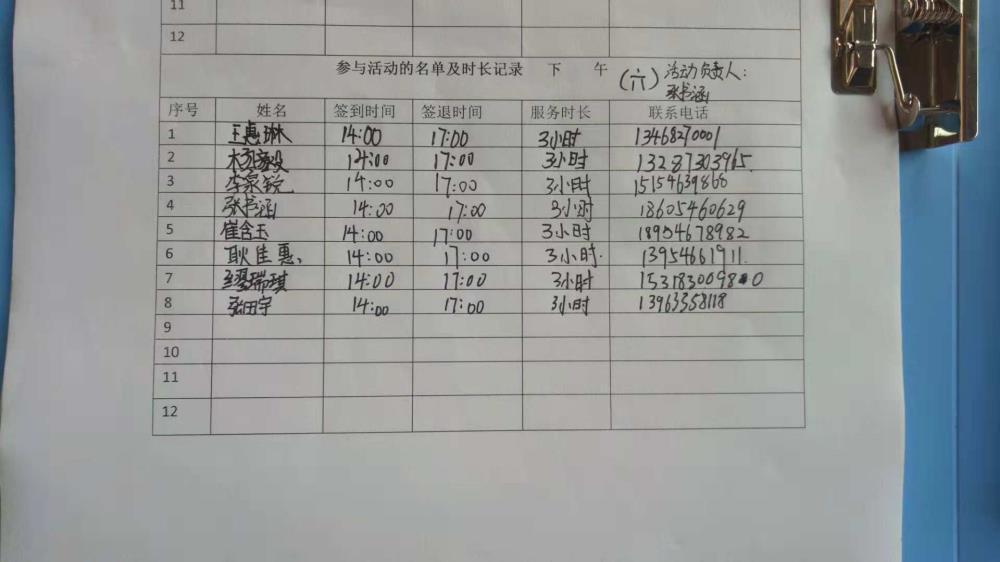 11
12
参与活动的名单及时长记录 下 午 (六) 活动负责人:
张书涵
序号 姓名 签到时间 签退时间 服务时长 联系电话
1 王惠琳 14:00 17:00 3小时 13468270001
2 14:00 17:00 3小时 13287303965
3 李泉锐 14:00 17:00 3小时 15154639866
4 张书涵 14:00 17:00 3小时 18605460629
5 崔含玉 14:00 17:00 3小时 18954678982
6 耿佳惠 14:00 17:00 3小时 13954661911
7 瑞琪 14:00 17:00 3小时 15318300980
8 张田宇 14:00 17:00 3小时 13963358118
9
10
11
12